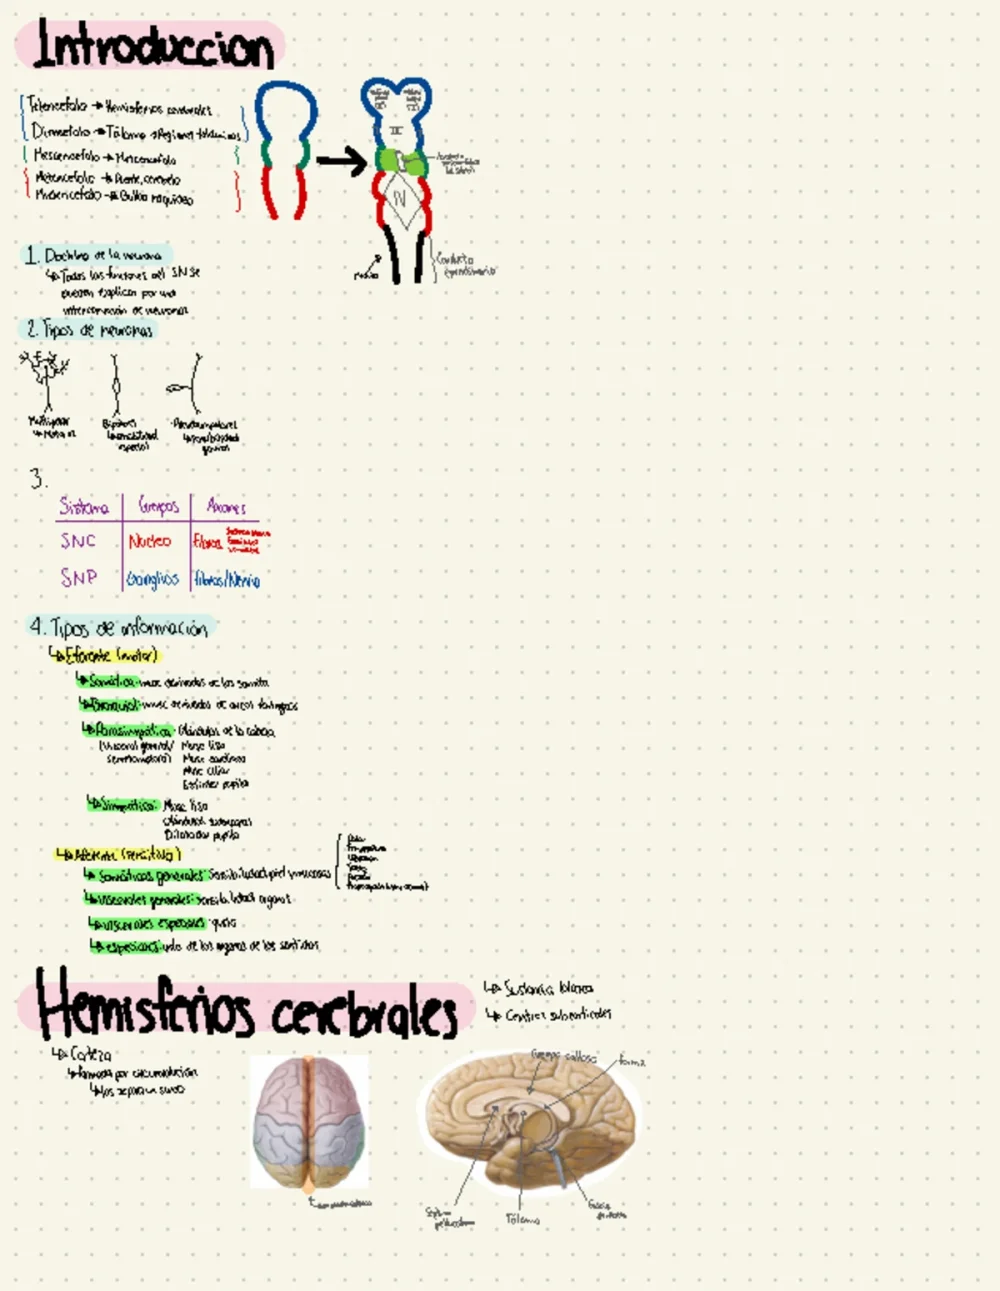 Introduccion
Telencefalo → Hemisferios cerebrales
Diencefalo → Tálamo → Regiones talámicas
Mesencefalo → Mesencefalo
Metencefalo → Puente, cerebelo
Mielencefalo → Bulbo raquideo
III
IV
Medula
Conducto
ependimario
1. Doctrina de la neurona
↳ Todas las funciones del SN se
pueden explicar por una
interconexión de neuronas
2. Tipos de neuronas
Multipolar
Bipolares
especial
Pseudounipolares
3.
Sistema Cuerpos Axones
SNC Nucleo Fibras
SNP Ganglios Fibras/Nervio
4. Tipos de información
↳ Eferente (motor)
↳ Somática: musc derivados de los somita
↳ Branquial: musc derivados de arcos faringeos
↳ Parasimpática: Glándulas de la cabeza
(visceral general/ Musc liso
Musc cardiaco
Musc ciliar
Esfinter pupila
↳ Simpática: Musc liso
Glándulas
Dilatador pupila
↳ Aferente (sensitiva)
↳ Somáticas generales: Sensibilidad piel y mucosas
↳ viscerales generales: sensibilidad organos
↳ viscerales especiales: gusto
↳ especiales: uno de los organos de los sentidos
Hemisferios cerebrales
↳ Sustancia blanca
↳ Centros subcorticales
↳ Corteza
↳ formada por circunvolución
↳ los separa un surco
Cuerpo calloso
fornix
Septum
pellucidum
Tálamo